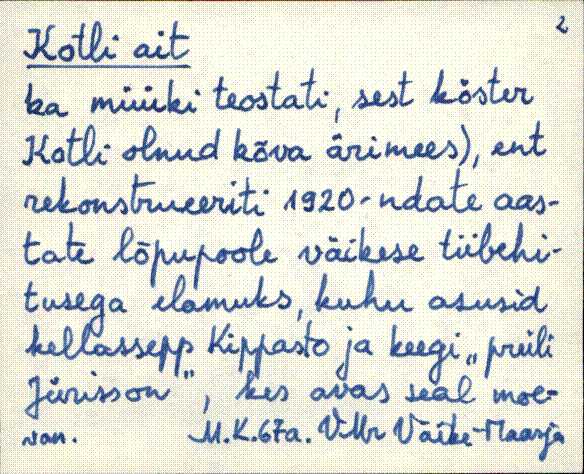 2
Kotli ait
ka müüki teostati, sest köster
Kotli olnud kõva ärimees), ent
rekonstrueeriti 1920-ndate aas-
tate lõpupoole väikese tiibehi-
tusega elamuks, kuhu asusid
kellassepp Kippasto ja keegi „prüli
Jürisson", kes avas seal moe-
van. M.K.67a. VMr Väike-Maarja